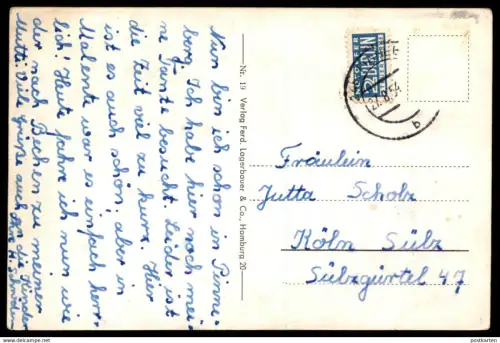 Nun bin ich schon in Pinne-
berg. Ich habe hier noch mei-
ne Tante besucht. Leider ist
die Zeit viel zu kurz. Hier
ist es auch schön, aber in
Malente war es einfach herr-
lich! Heute fahre ich nun wie-
der nach Bechen zu meiner
Mutti. Viele Grüße auch an die Kinder
Ihre H.
Nr. 19 Verlag Ferd. Lagerbauer & Co., Hamburg 20
NOTOPFER
2 BERLIN
21.8.54
b
Fräulein
Jutta Scholz
Köln Sülz
Sülzgürtel 47
postkarten